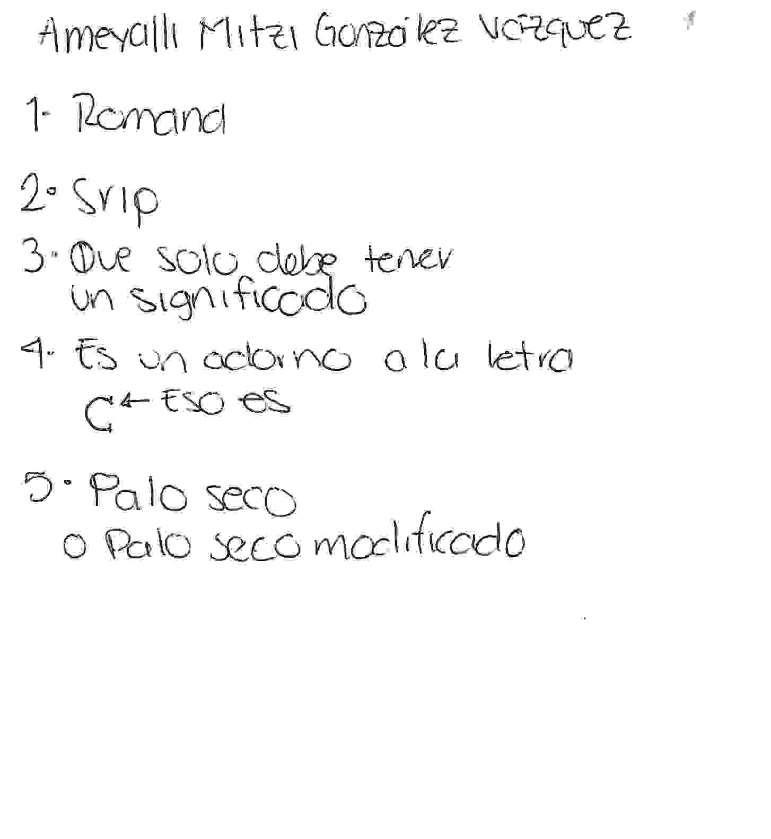 Ameyalli Mitzi González Vázquez
1- Romana
2. Srip
3. Que solo debe tener
un significado
4. Es un adorno a la letra
C ← Eso es
5. Palo seco
o Palo seco modificado